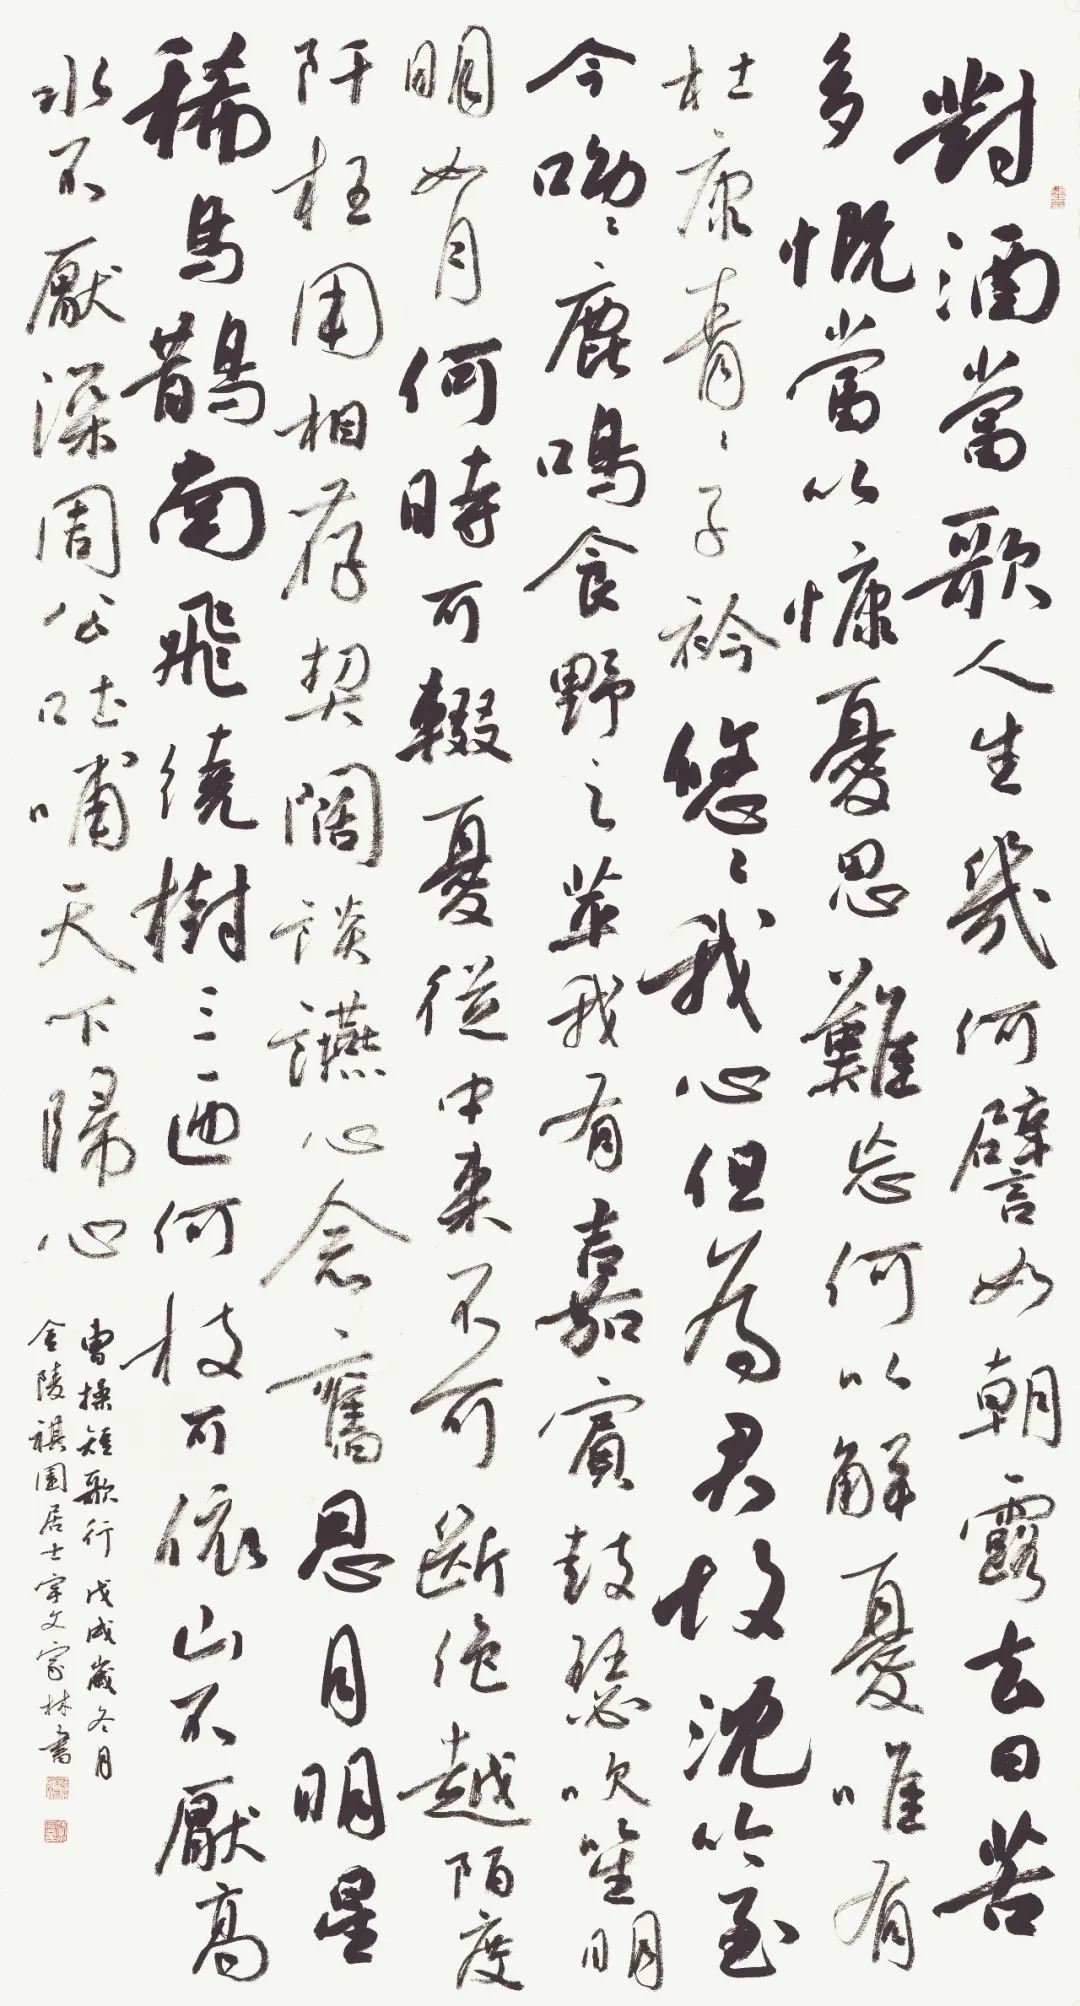 對酒當歌人生幾何譬如朝露去日苦
多慨當以慷憂思難忘何以解憂唯有
杜康青〻子衿悠〻我心但為君故沈吟至
今呦〻鹿鳴食野之苹我有嘉賓鼓瑟吹笙明
明如月何時可輟憂從中來不可斷絕越陌度
阡枉用相存契闊談讌心念舊恩月明星
稀烏鵲南飛繞樹三匝何枝可依山不厭高
水不厭深周公吐哺天下歸心
曹操短歌行戊戌歲冬月
金陵祺園居士宇文家林書